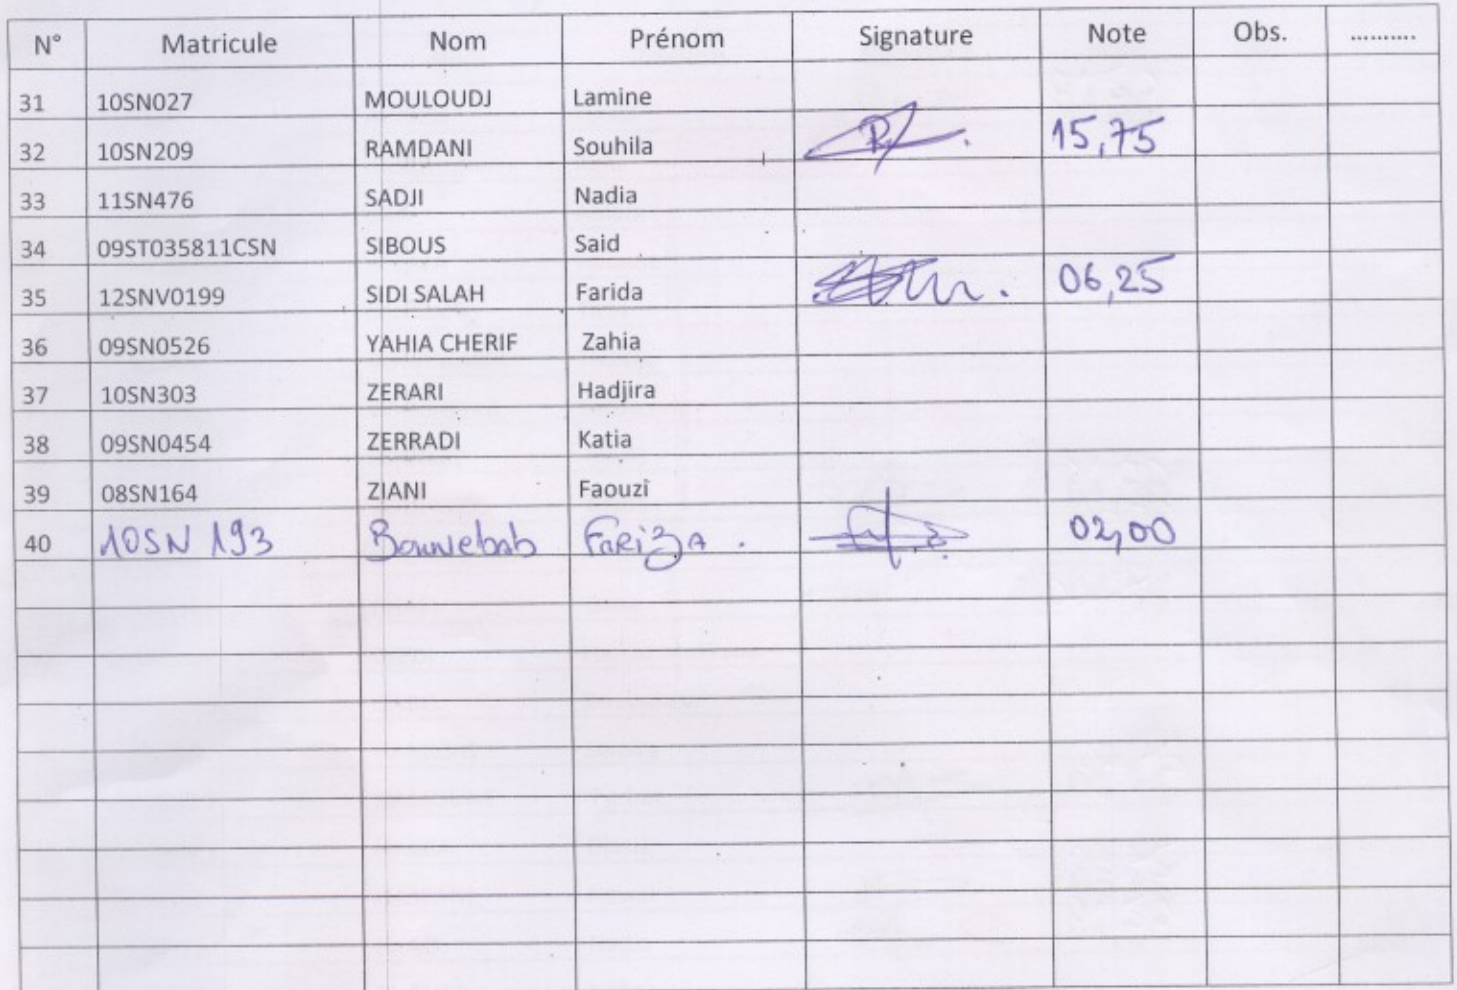 N° Matricule Nom Prénom Signature Note Obs. ..........
31 10SN027 MOULOUDJ Lamine
32 10SN209 RAMDANI Souhila 15,75
33 11SN476 SADJI Nadia
34 09ST035811CSN SIBOUS Said
35 12SNV0199 SIDI SALAH Farida 06,25
36 09SN0526 YAHIA CHERIF Zahia
37 10SN303 ZERARI Hadjira
38 09SN0454 ZERRADI Katia
39 08SN164 ZIANI Faouzi
40 10SN 193 Bounebab FARIZA . 02,00